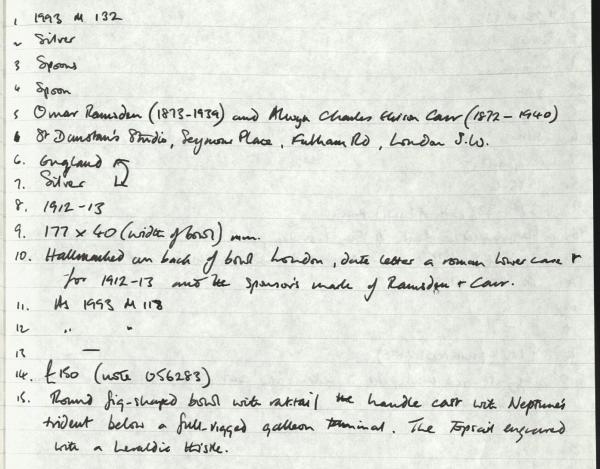 1 1993 M 132
2 Silver
3 Spoons
4 Spoon
5 Omar Ramsden (1873-1939) and Alwyn Charles Elison Carr (1872-1940)
6 St Dunstan's Studio, Seymour Place, Fulham Rd, London S.W.
6. England
7. Silver
8. 1912-13
9. 177 x 40 (width of bowl) mm.
10. Hallmarked on back of bowl London, date letter a roman lower case r
for 1912-13 and the sponsor's mark of Ramsden + Carr.
11. As 1993 M 118
12 " "
13 —
14. £150 (note 056283)
15. Round fig-shaped bowl with rat-tail the handle cast with Neptune's
trident below a full-rigged galleon terminal. The Topsail engraved
with a heraldic thistle.